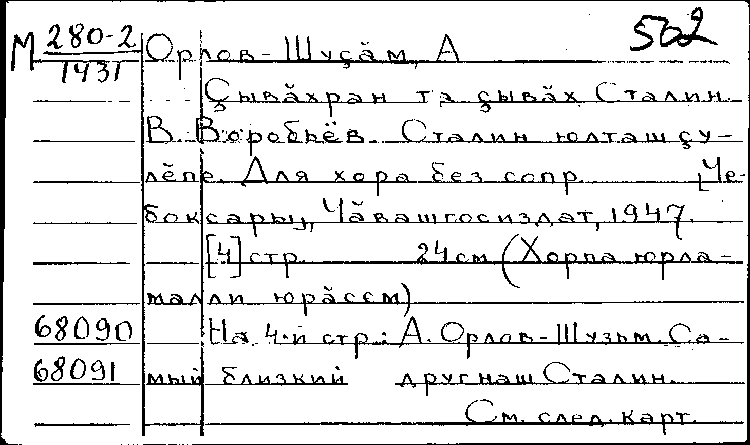 М 280-2 Орлов-Шуҫӑм, А 502
1431
Ҫывӑхран та ҫывӑх Сталин.
В. Воробьёв. Сталин юлташ ҫу-
лӗпе. Для хора без сопр. [Че-
боксары], Чӑвашгосиздат, 1947.
[4] стр. 24 см (Хорпа юрла-
малли юрӑсем)
68090 На 4-й стр.: А. Орлов-Шузьм. Са-
68091 мый близкий друг наш Сталин.
См. след. карт.